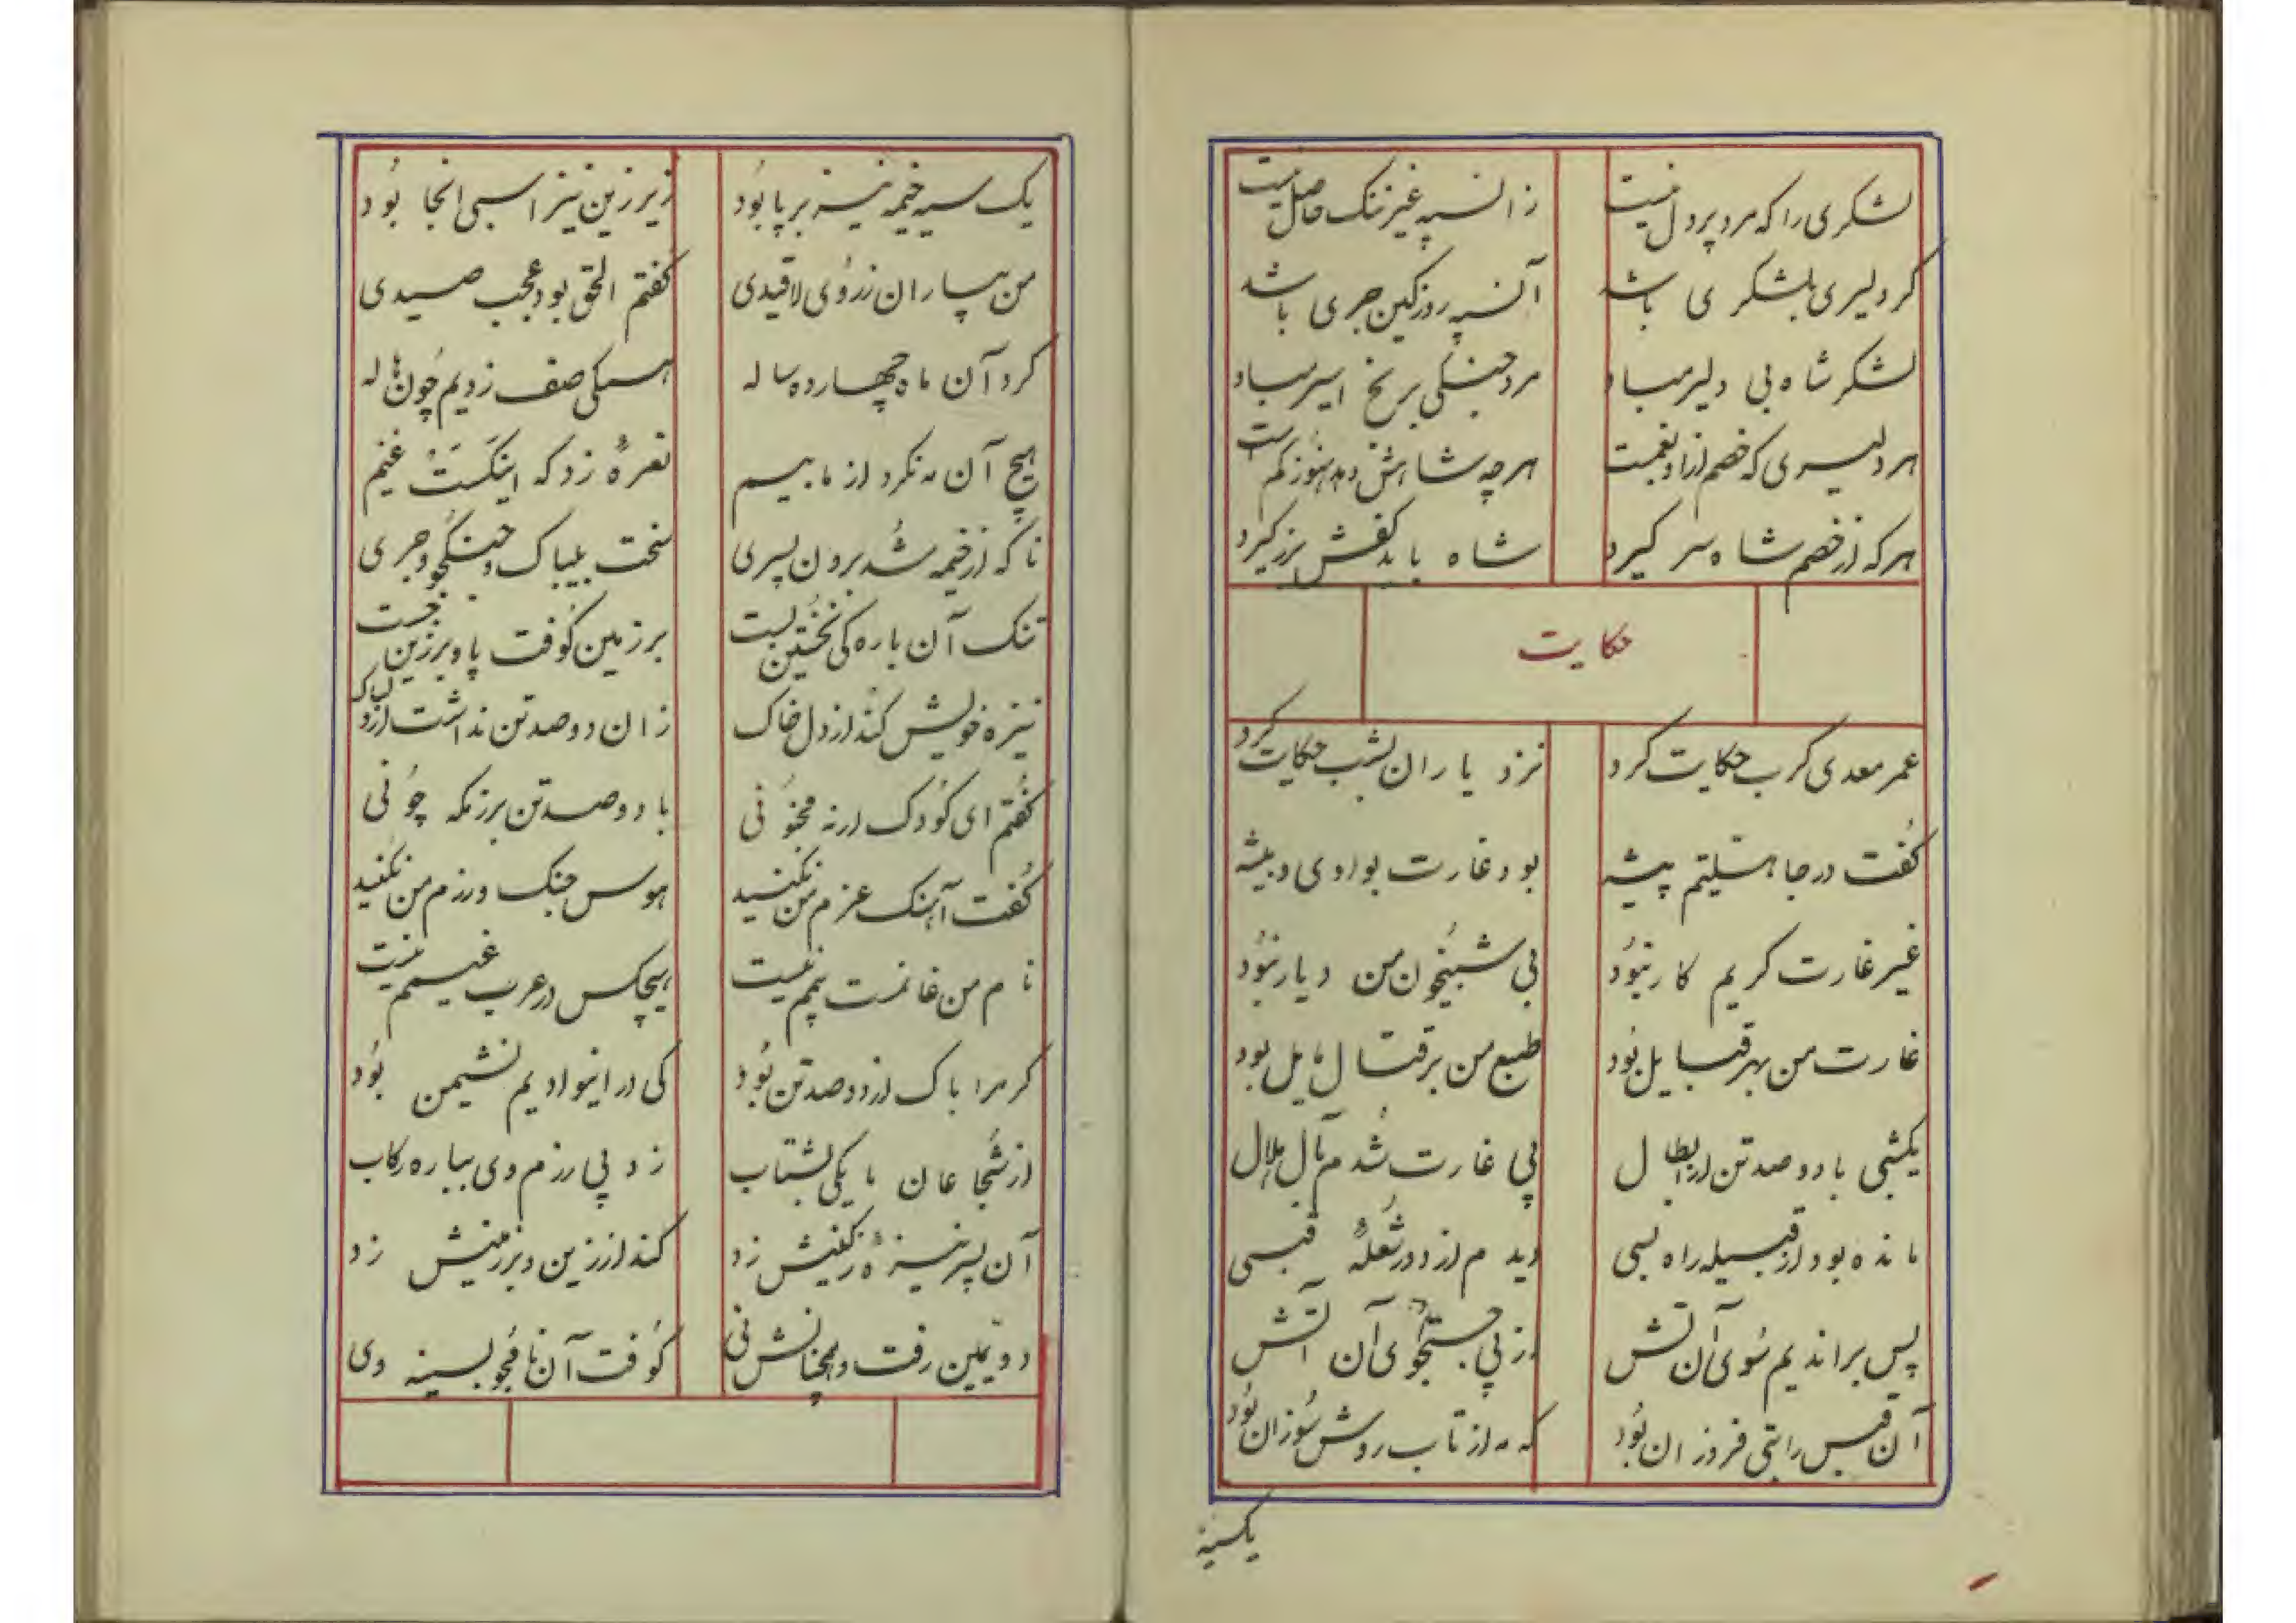 لشکری را که مرد پر دل نیست زان سپه غیر ننک حاصل نیست
کر دلیری بلشکری باشد آن سپه روز کین جری باشد
لشکر شاه بی دلیر مباد مرد جنکی برنج اسیر مباد
هر دلیری که خصم ازاو بغمست هر چه شاهش دهد هنوز کمست
هر که از خصم شاه سر کیرد شاه باید کفش بزر کیرد
حکایت
عمر معدی کرب حکایت کرد نزد یاران بشب حکایت کرد
کفت در جاهلیتم پیشه بود غارت بوادی و بیشه
غیر غارت کریم کار نبود بی شبیخون من دیار نبود
غارت من بهر قبایل بود طبع من بر قتال مایل بود
یکشبی با دو صد تن از ابطال پی غارت شدم بآل هلال
مانده بود از قبیله راه بسی دیدم از دور شعلهٔ قبسی
پس براندیم سوی آن آتش از پی جستجوی آن آتش
آن قبس رایتی فروزان بود که مه از تاب روش سوزان بود
یکسیه
یک سیه خیمه نیز بر پا بود زیر زین نیز اسبی انجا بود
من بیاران ز روی لاقیدی کفتم الحق بود عجب صیدی
کرد آن ماه چهارده ساله همکی صف زدیم چون هاله
هیچ آن مه نکرد از ما بیم نعرهٔ زد که اینکست غنیم
ناکه از خیمه شد برون پسری سخت بیباک و جنکجو و جری
تنک آن باره کی نخستین بست بر زمین کوفت پا و بر زین جست
نیزه خویش کند از دل خاک زان دو صد تن نداشت ازو باک
کفتم ای کودک ار نه مجنونی با دو صد تن برزمکه چونی
کفت آهنک عزم من نکنید هوس جنک و رزم من نکنید
نام من غانمست بیمم نیست هیچکس در عرب غنیمم نیست
کر مرا باک از دو صد تن بود کی در اینوادیم نشیمن بود
از شجاعان ما یکی بشتاب زد پی رزم وی بباره رکاب
آن پسر نیزه‌ٔ ز کینش زد کند از زین و بر زمینش زد
دویمین رفت و همچنانش نی کوفت آن نامجو بسینه وی